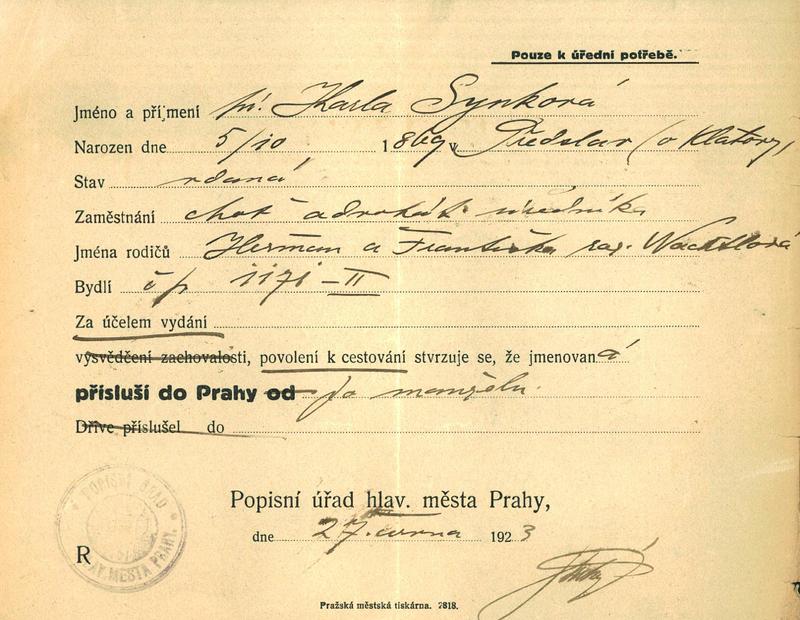 Pouze k úřední potřebě.
Jméno a příjmení pí. Karla Synková
Narozen dne 5/10 1869 v Předslav (o Klatovy)
Stav vdaná
Zaměstnání choť advokát. úředníka
Jména rodičů Heřman a Františka roz.
Bydlí čp 1171-II
Za účelem vydání
vysvědčení zachovalosti, povolení k cestování stvrzuje se, že jmenovaná
přísluší do Prahy od po manželu.
Dříve příslušel do
Popisní úřad hlav. města Prahy,
dne 27. června 1923
POPISNÍ ÚŘAD
HLAV. MĚSTA PRAHY.
R
Pražská městská tiskárna. 2818.